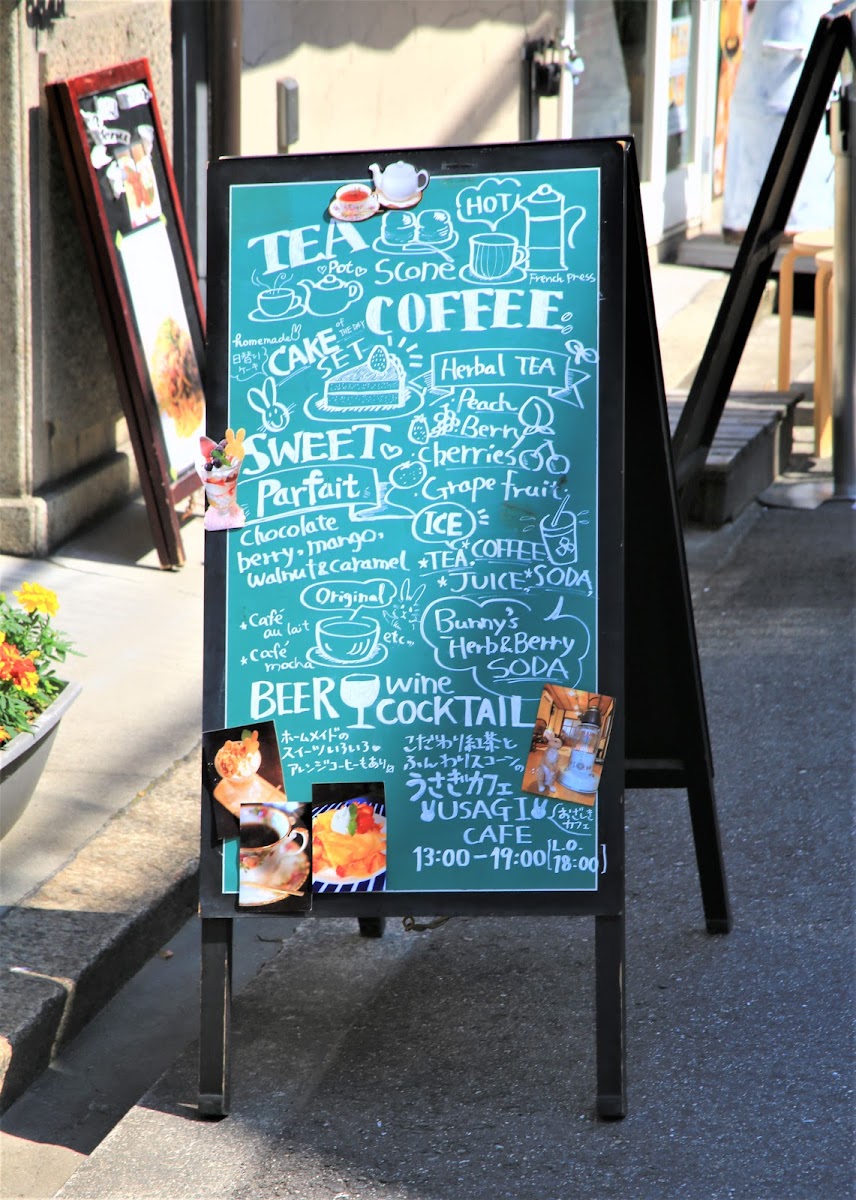 TEA
HOT
Pot
Scone
French press
COFFEE
homemade
日替り
ケーキ
CAKE OF THE DAY
SET
Herbal TEA
Peach
Berry
cherries
Grape fruit
SWEET
Parfait
Chocolate
berry, mango,
walnut & caramel
ICE
*TEA. *COFFEE
*JUICE, *SODA,
Original
*Café
au lait
*Café
mocha
etc...
Bunny's
Herb&Berry
SODA
BEER
wine
COCKTAIL
ホームメイドの
スイーツいろいろ♥
アレンジコーヒーもあり
こだわり紅茶と
ふんわりスコーンの
うさぎカフェ
USAGI
CAFE
おざしき
カフェ
13:00-19:00 [L.O. 18:00]